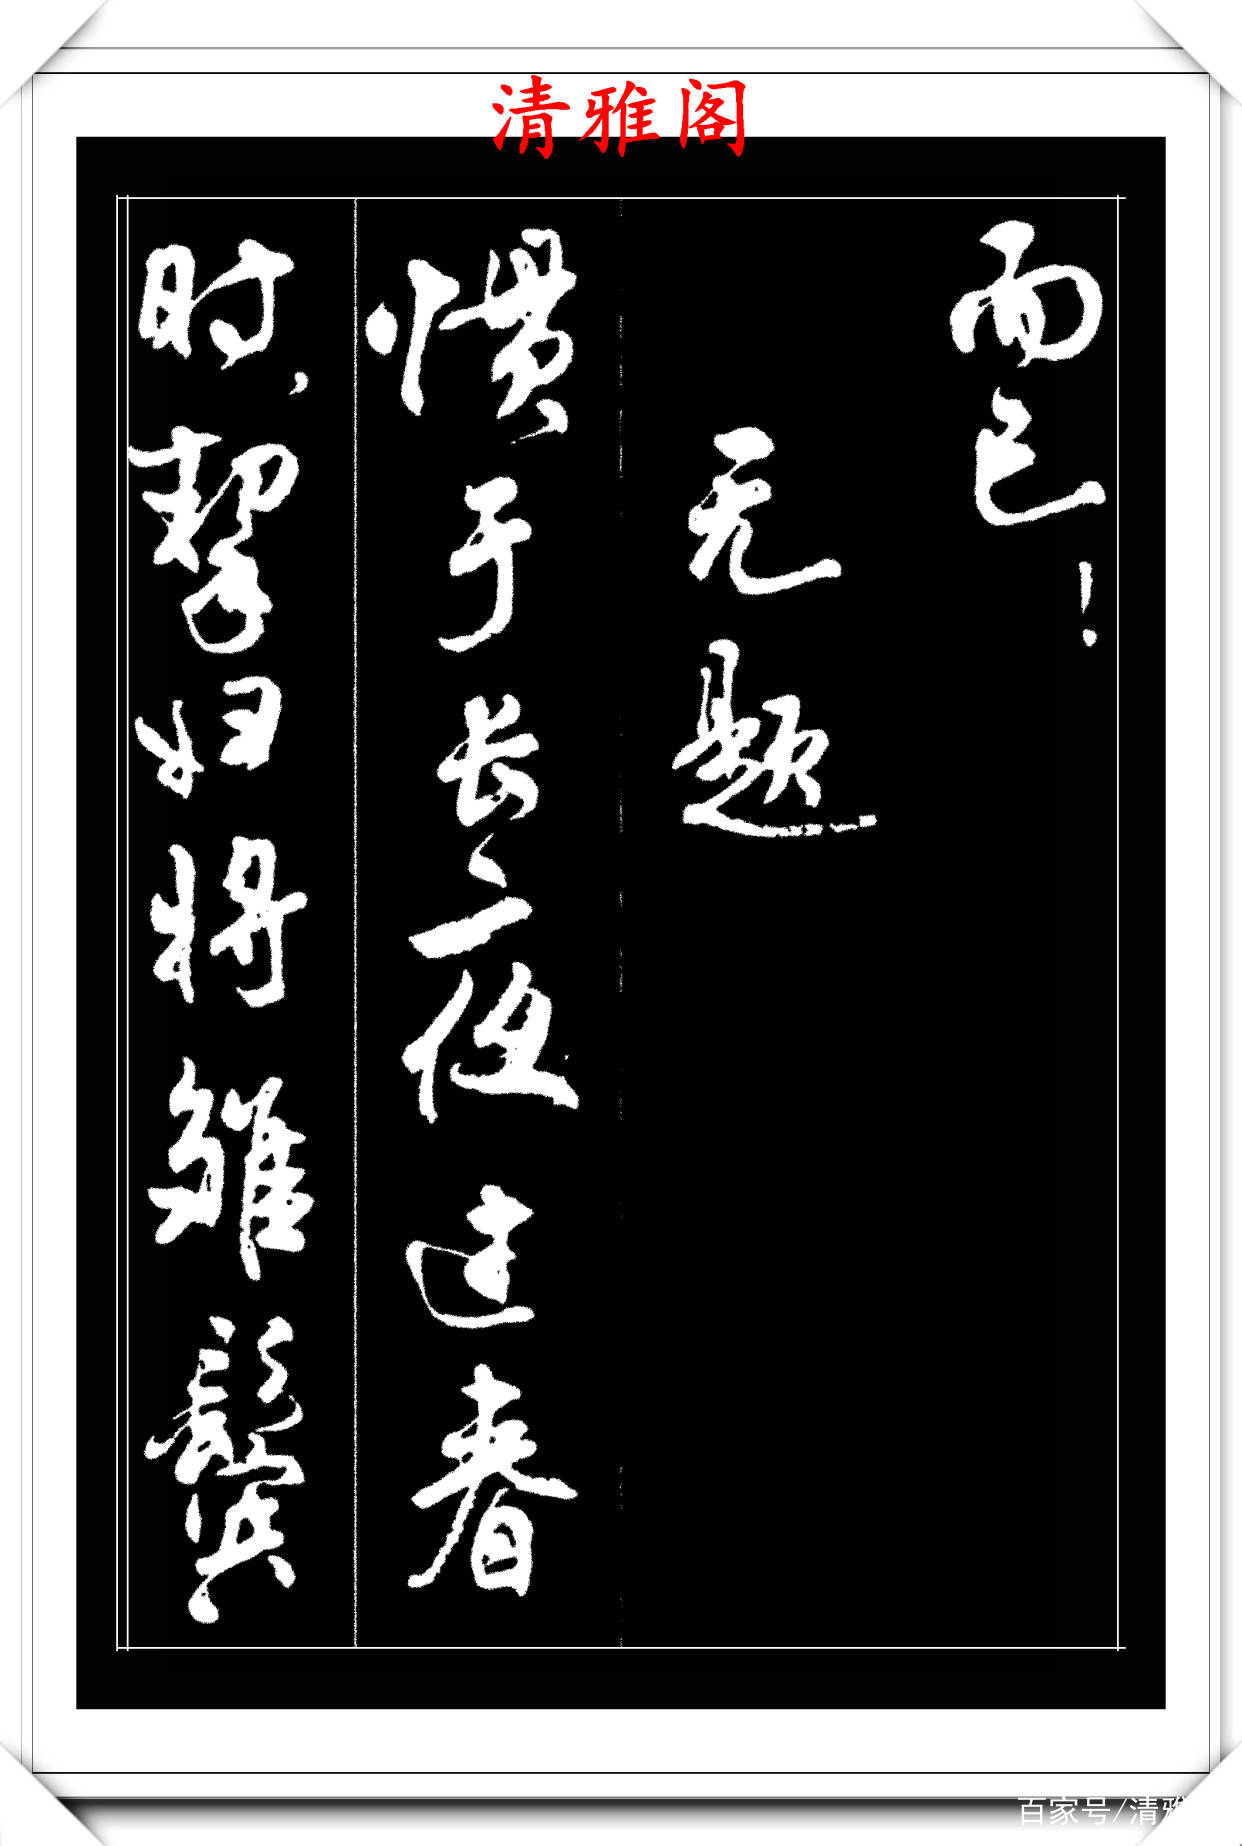 清雅阁
而已!
无题
惯于长夜过春
时,挈妇将雏鬓
百家号/清雅